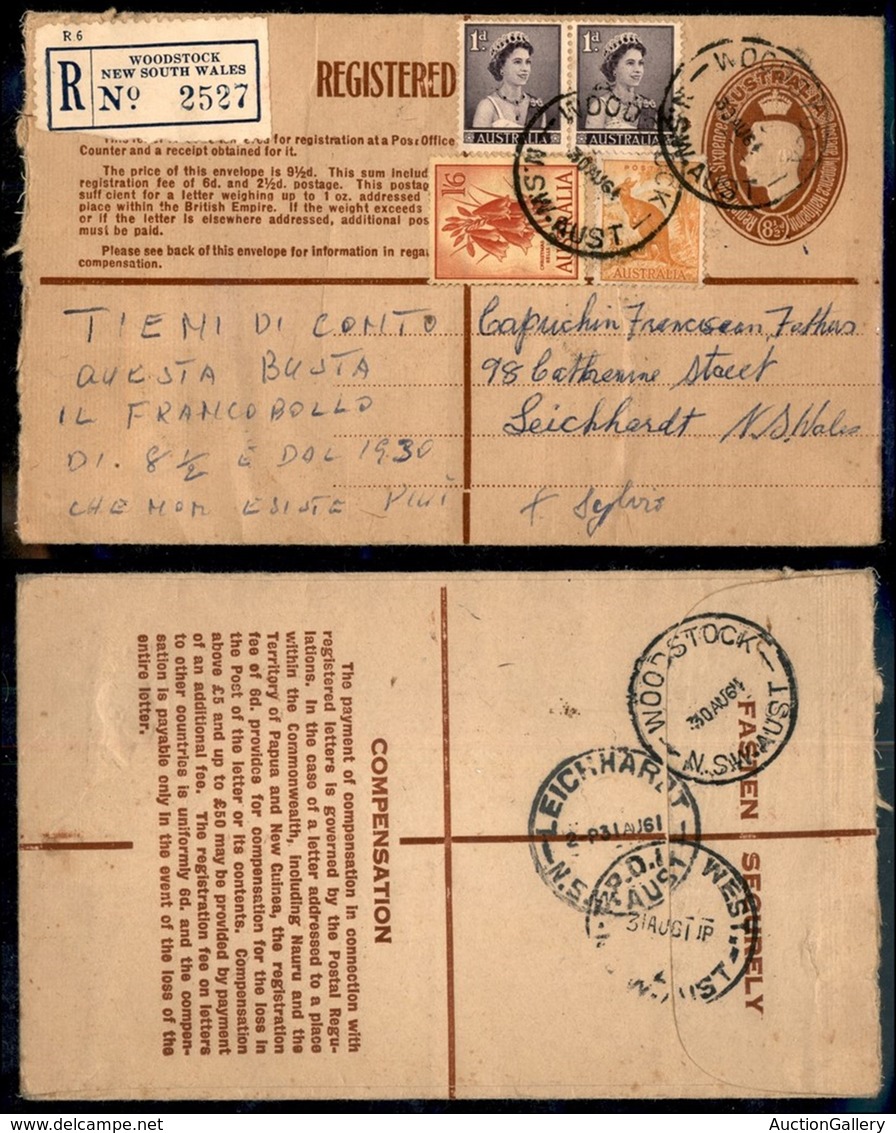 R.6
R
WOODSTOCK
NEW SOUTH WALES
No 2527
REGISTERED
1d.
AUSTRALIA
1d.
AUSTRALIA
for registration at a Post Office
Counter and a receipt obtained for it.
The price of this envelope is 9½d. This sum inclu
registration fee of 6d. and 2½d. postage. This postag
sufficient for a letter weighing up to 1 oz. addressed
place within the British Empire. If the weight exceeds
or if the letter is elsewhere addressed, additional pos
must be paid.
Please see back of this envelope for information in regar
compensation.
1/6
AUSTRALIA
CHRISTMAS
BELLS
AUSTRALIA
WOODSTOCK
30 AU 61
N.S.W. AUST
WOO
N.S.W. AUS
AUSTRALIA
8½d
TIENI DI CONTO
QUESTA BUSTA
IL FRANCOBOLLO
DI. 8 ½ E DAL 1930
CHE NON ESISTE PIUI
Capuchin Franciscan Fathers
98 Catherine Street
Leichhardt N S Wales
+ Sylvio
COMPENSATION
The payment of compensation in connection with
registered letters is governed by the Postal Regu-
lations. In the case of a letter addressed to a place
within the Commonwealth, including Nauru and the
Territory of Papua and New Guinea, the registration
fee of 6d. provides for compensation for the loss in
the Post of the letter or its contents. Compensation
above £5 and up to £50 may be provided by payment
of an additional fee. The registration fee on letters
to other countries is uniformly 6d. and the compen-
sation is payable only in the event of the loss of the
entire letter.
FASTEN SECURELY
WOODSTOCK
30 AU 61
N.S.W. AUST
LEICHHARDT
2-P 31 AU 61
N.S.
AUST
WEST.
31 AU 61 1P
N. AUST
AuctionGallery